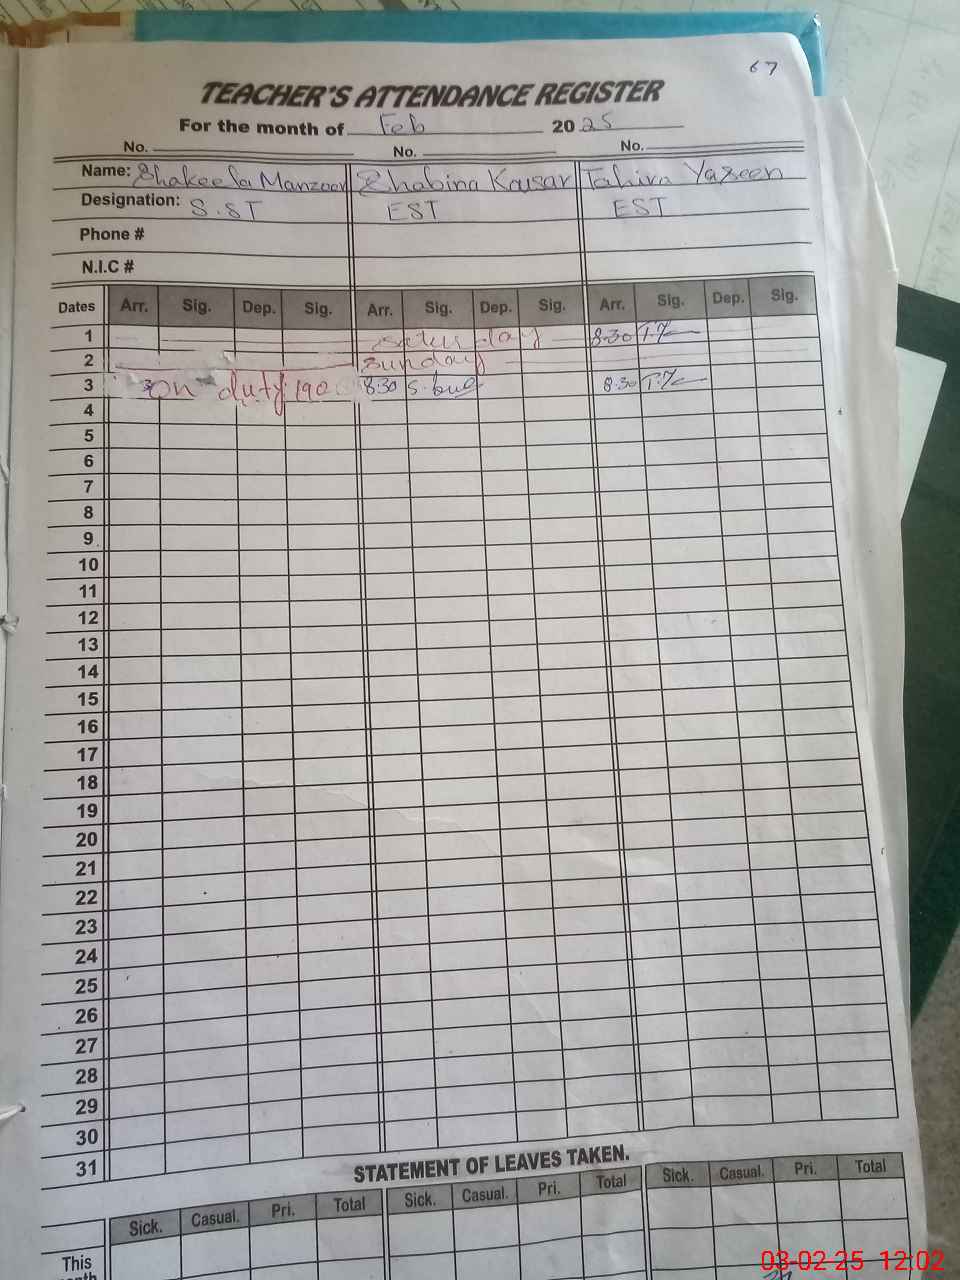 67
TEACHER'S ATTENDANCE REGISTER
For the month of Feb 2025
No. No. No.
Name: Shakeela Manzoor Shabina Kousar Tahira Yaseen
Designation: S.ST EST EST
Phone #
N.I.C #
Dates Arr. Sig. Dep. Sig. Arr. Sig. Dep. Sig. Arr. Sig. Dep. Sig.
1 Saturday 8:30
2 Sunday
3 On duty 8:30 8:30
4
5
6
7
8
9
10
11
12
13
14
15
16
17
18
19
20
21
22
23
24
25
26
27
28
29
30
31
STATEMENT OF LEAVES TAKEN.
Sick. Casual. Pri. Total Sick. Casual. Pri. Total Sick. Casual. Pri. Total
This
03-02-25 12:02